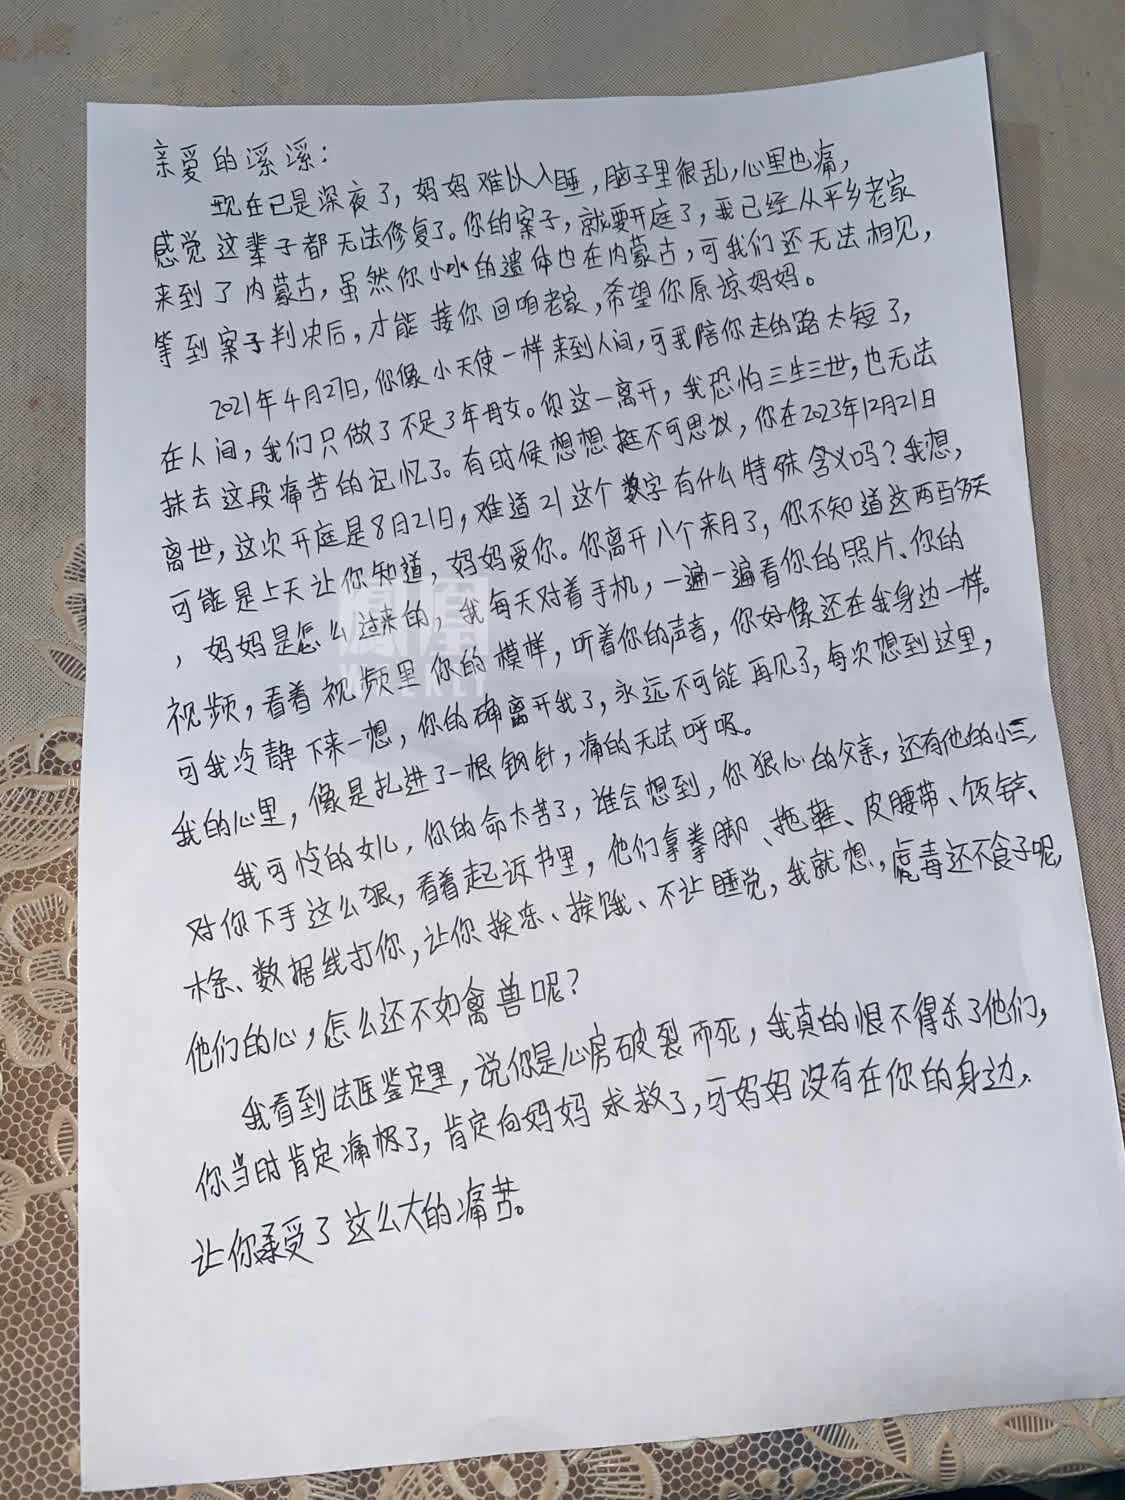 亲爱的溪溪：
现在已是深夜了，妈妈难以入睡，脑子里很乱，心里也痛，
感觉这辈子都无法修复了。你的案子，就要开庭了，我已经从平乡老家
来到了内蒙古，虽然你小小的遗体也在内蒙古，可我们还无法相见，
等到案子判决后，才能接你回咱老家，希望你原谅妈妈。
2021年4月27日，你像小天使一样来到人间，可我陪你走的路太短了，
在人间，我们只做了不足3年母女。你这一离开，我恐怕三生三世，也无法
抹去这段痛苦的记忆了。有时候想想挺不可思议，你在2023年12月21日
离世，这次开庭是8月21日，难道21这个数字有什么特殊含义吗？我想，
可能是上天让你知道，妈妈爱你。你离开八个来月了，你不知道这两百多天
，妈妈是怎么过来的，我每天对着手机，一遍一遍看你的照片、你的
视频，看着视频里你的模样，听着你的声音，你好像还在我身边一样。
可我冷静下来一想，你的确离开我了，永远不可能再见了，每次想到这里，
我的心里，像是扎进了一根钢针，痛的无法呼吸。
我可怜的女儿，你的命太苦了，谁会想到，你狠心的父亲，还有他的小三，
对你下手这么狠，看着起诉书里，他们拿拳脚、拖鞋、皮腰带、饭铲、
木条、数据线打你，让你挨冻、挨饿、不让睡觉，我就想，虎毒还不食子呢，
他们的心，怎么还不如禽兽呢？
我看到法医鉴定里，说你是心房破裂而死，我真的恨不得杀了他们，
你当时肯定痛极了，肯定向妈妈求救了，可妈妈没有在你的身边，
让你承受了这么大的痛苦。
鳳凰
WEEKLY